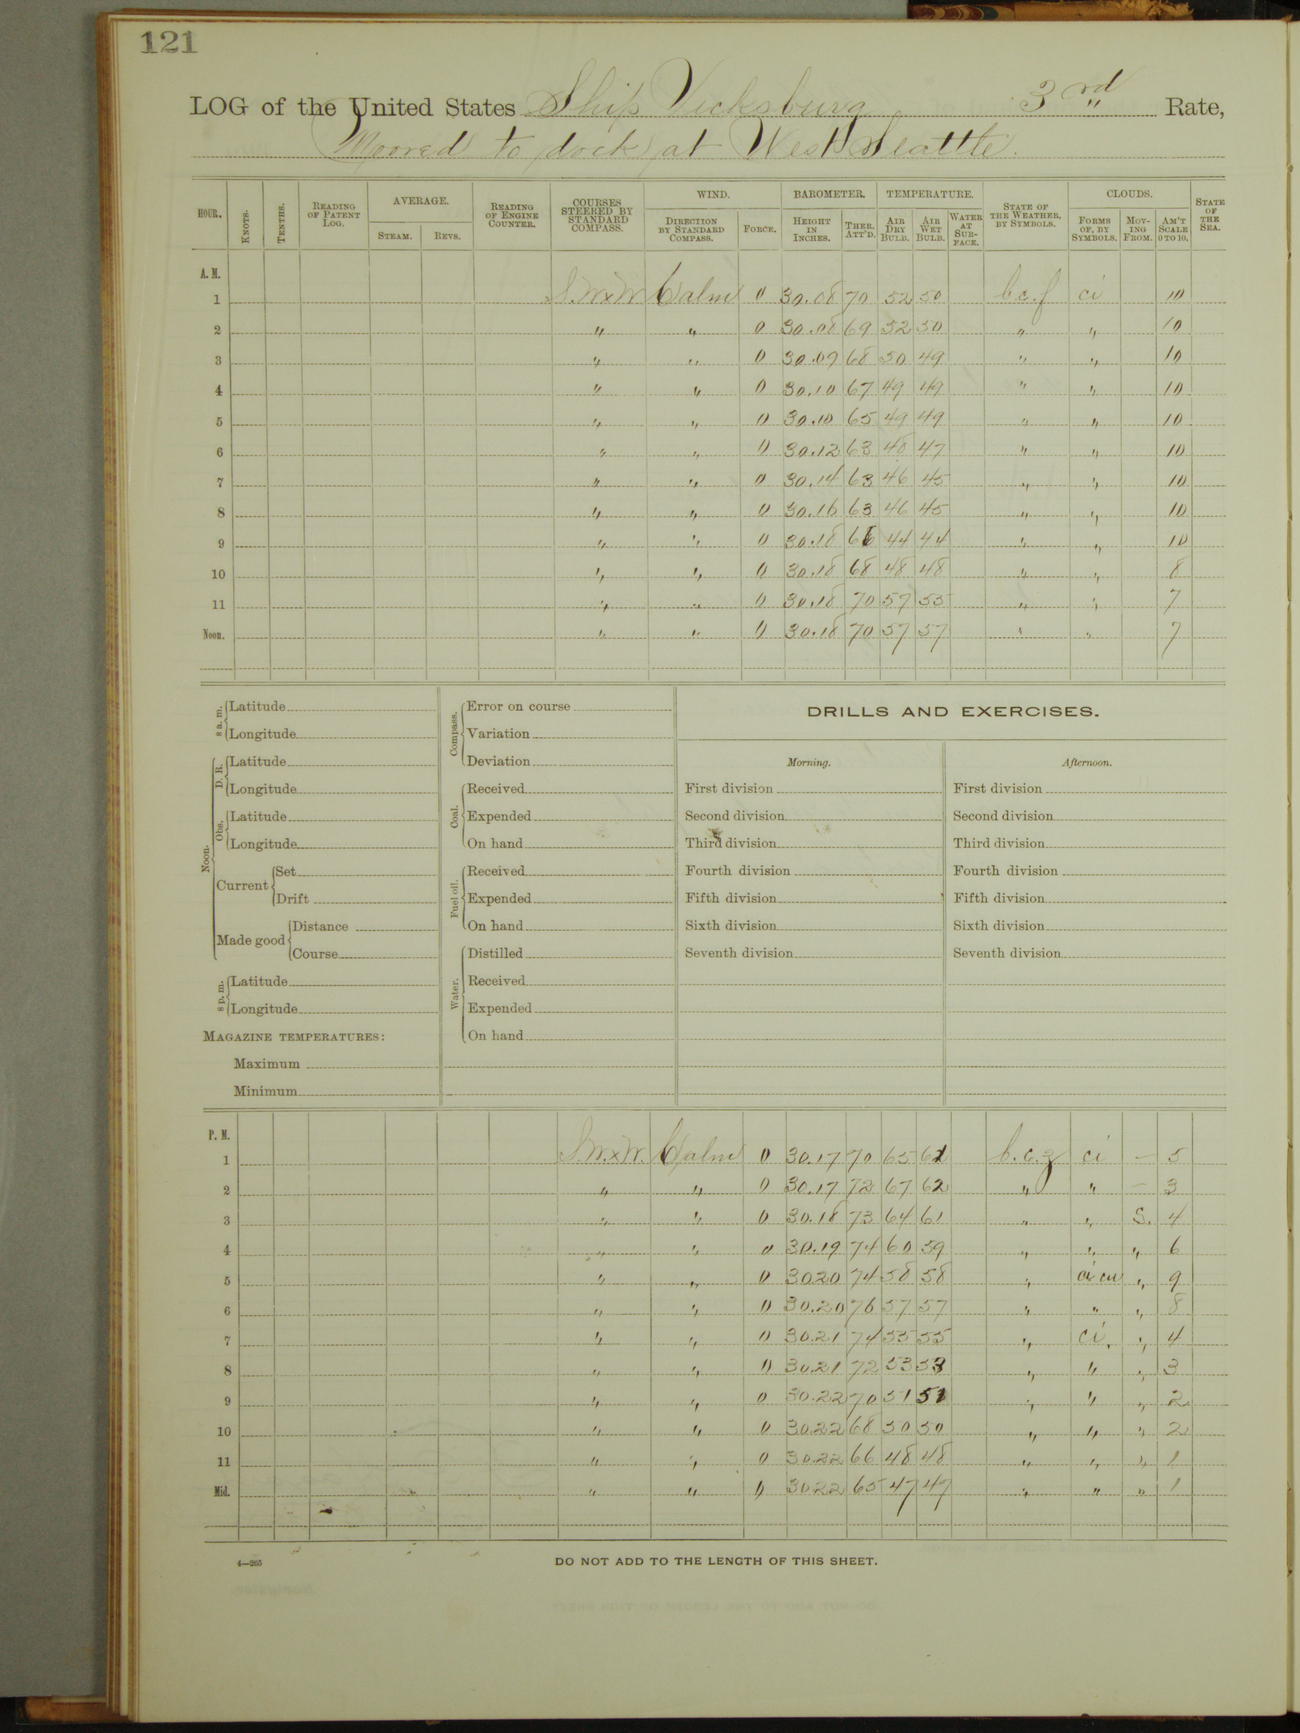 121
LOG of the United States Ship Vicksburg 3rd " Rate,
Moored to dock at West Seattle.
HOUR. KNOTS. TENTHS. READING OF PATENT LOG. AVERAGE. STEAM. REVS. READING OF ENGINE COUNTER. COURSES STEERED BY STANDARD COMPASS. WIND. DIRECTION BY STANDARD COMPASS. FORCE. BAROMETER. HEIGHT IN INCHES. THER. ATT'D. TEMPERATURE. AIR DRY BULB. AIR WET BULB. WATER AT SURFACE. STATE OF THE WEATHER, BY SYMBOLS. CLOUDS. FORMS OF, BY SYMBOLS. MOVING FROM. AM'T SCALE 0 TO 10. STATE OF THE SEA.
A. M.
1 S.W.xW. Calm 0 30.08 70 52 50 b.c.f ci 10
2 " " 0 30.08 69 52 50 " " 10
3 " " 0 30.09 68 50 49 " " 10
4 " " 0 30.10 67 49 49 " " 10
5 " " 0 30.10 65 49 49 " " 10
6 " " 0 30.12 63 48 47 " " 10
7 " " 0 30.14 63 46 45 " " 10
8 " " 0 30.16 63 46 45 " " 10
9 " " 0 30.18 66 44 44 " " 10
10 " " 0 30.18 68 48 48 " " 8
11 " " 0 30.18 70 57 55 " " 7
Noon. " " 0 30.18 70 57 57 " " 7
8 a. m. Latitude
Longitude
Noon. D. R. Latitude
Longitude
Obs. Latitude
Longitude
Current Set
Drift
Made good Distance
Course
8 p. m. Latitude
Longitude
MAGAZINE TEMPERATURES:
Maximum
Minimum
Compass. Error on course
Variation
Deviation
Coal. Received
Expended
On hand
Fuel oil. Received
Expended
On hand
Water. Distilled
Received
Expended
On hand
DRILLS AND EXERCISES.
Morning. Afternoon.
First division First division
Second division Second division
Third division Third division
Fourth division Fourth division
Fifth division Fifth division
Sixth division Sixth division
Seventh division Seventh division
P. M.
1 S.W.xW. Calm 0 30.17 70 65 62 b.c.z ci — 5
2 " " 0 30.17 72 67 62 " " — 3
3 " " 0 30.18 73 64 61 " " S. 4
4 " " 0 30.19 74 60 59 " " " 6
5 " " 0 30.20 74 58 58 " ci cu " 9
6 " " 0 30.20 76 57 57 " " " 8
7 " " 0 30.21 74 55 55 " ci. " 4
8 " " 0 30.21 72 53 53 " " " 3
9 " " 0 30.22 70 51 51 " " " 2
10 " " 0 30.22 68 50 50 " " " 2
11 " " 0 30.22 66 48 48 " " " 1
Mid. " " 0 30.22 65 47 47 " " " 1
4—265 DO NOT ADD TO THE LENGTH OF THIS SHEET.